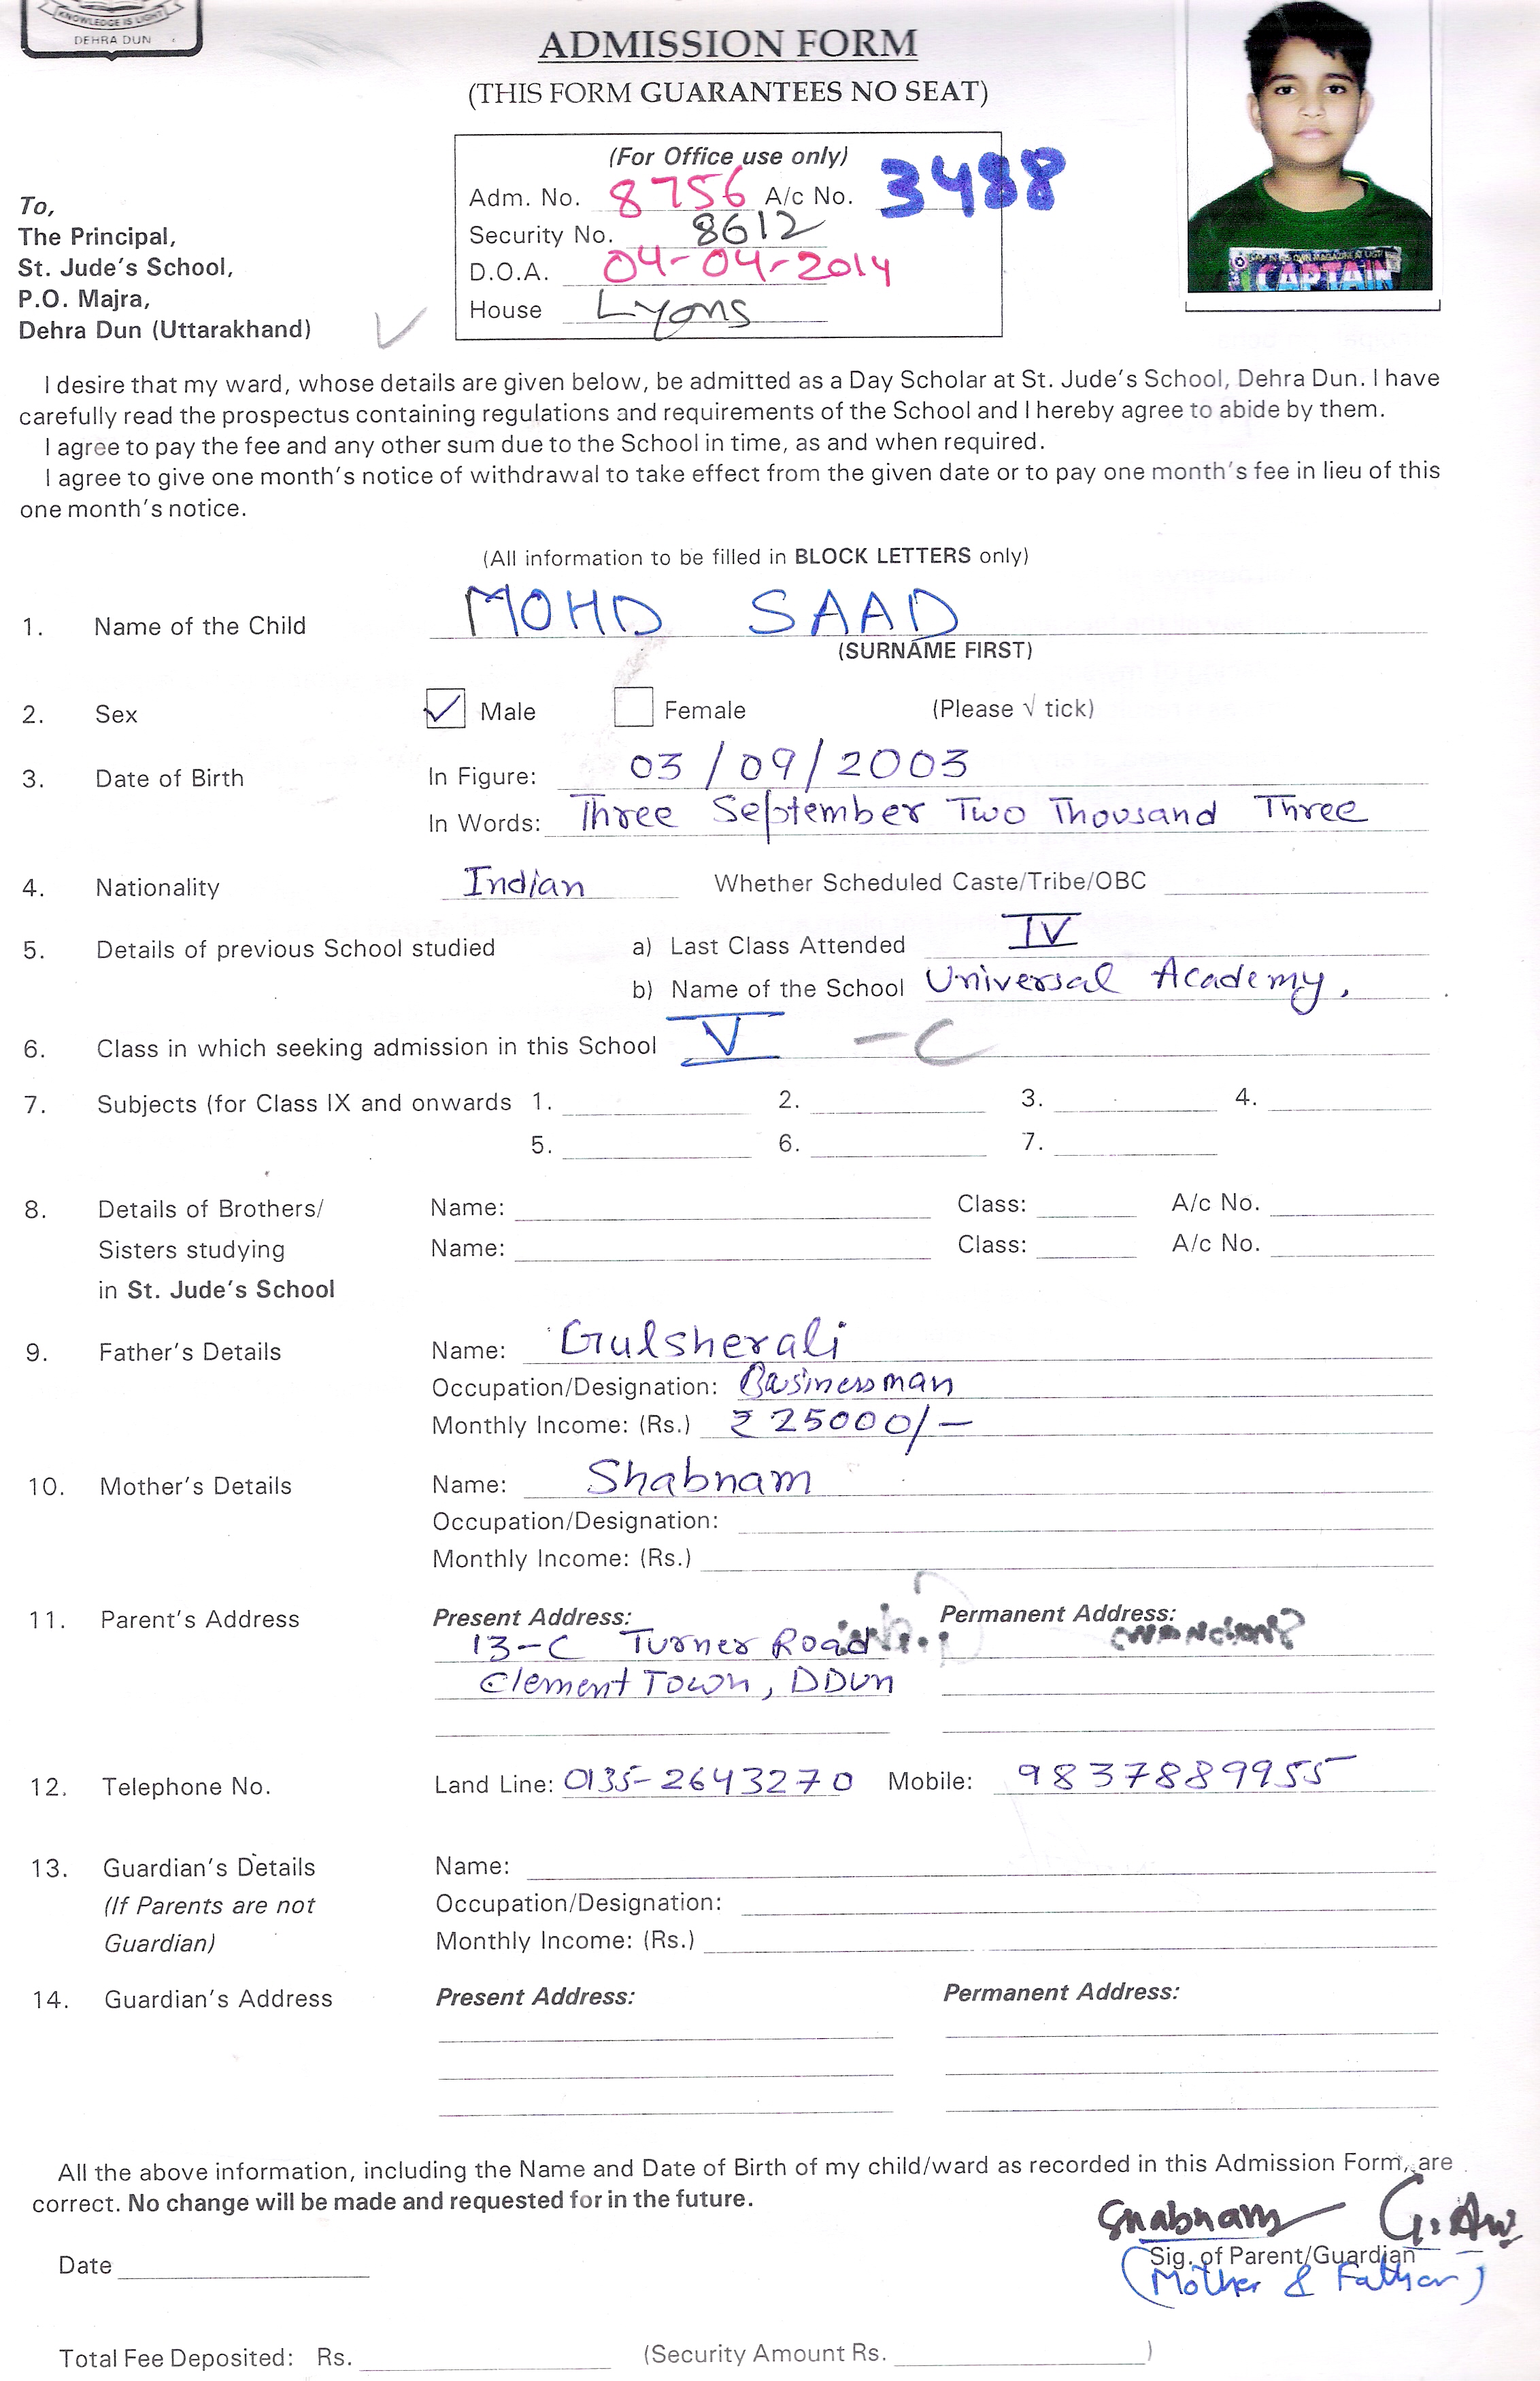 KNOWLEDGE IS LIGHT
DEHRA DUN
ADMISSION FORM
(THIS FORM GUARANTEES NO SEAT)
(For Office use only)
Adm. No. 8756 A/c No. 3488
Security No. 8612
D.O.A. 04-04-2014
House Lyons
To,
The Principal,
St. Jude's School,
P.O. Majra,
Dehra Dun (Uttarakhand)
CAPTAIN
I desire that my ward, whose details are given below, be admitted as a Day Scholar at St. Jude's School, Dehra Dun. I have
carefully read the prospectus containing regulations and requirements of the School and I hereby agree to abide by them.
I agree to pay the fee and any other sum due to the School in time, as and when required.
I agree to give one month's notice of withdrawal to take effect from the given date or to pay one month's fee in lieu of this
one month's notice.
(All information to be filled in BLOCK LETTERS only)
1. Name of the Child MOHD SAAD
(SURNAME FIRST)
2. Sex ✓ Male Female (Please √ tick)
3. Date of Birth In Figure: 03/09/2003
In Words: Three September Two Thousand Three
4. Nationality Indian Whether Scheduled Caste/Tribe/OBC
5. Details of previous School studied a) Last Class Attended IV
b) Name of the School Universal Academy,
6. Class in which seeking admission in this School V - C
7. Subjects (for Class IX and onwards 1. 2. 3. 4.
5. 6. 7.
8. Details of Brothers/ Name: Class: A/c No.
Sisters studying Name: Class: A/c No.
in St. Jude's School
9. Father's Details Name: Gulsherali
Occupation/Designation: Businessman
Monthly Income: (Rs.) ₹ 25000/-
10. Mother's Details Name: Shabnam
Occupation/Designation:
Monthly Income: (Rs.)
11. Parent's Address Present Address: Permanent Address:
13-C Turner Road
Clement Town, DDun
12. Telephone No. Land Line: 0135-2643270 Mobile: 9837889955
13. Guardian's Details Name:
(If Parents are not Occupation/Designation:
Guardian) Monthly Income: (Rs.)
14. Guardian's Address Present Address: Permanent Address:
All the above information, including the Name and Date of Birth of my child/ward as recorded in this Admission Form, are
correct. No change will be made and requested for in the future.
Shabnam
Date Sig. of Parent/Guardian
(Mother & Father)
Total Fee Deposited: Rs. (Security Amount Rs. )